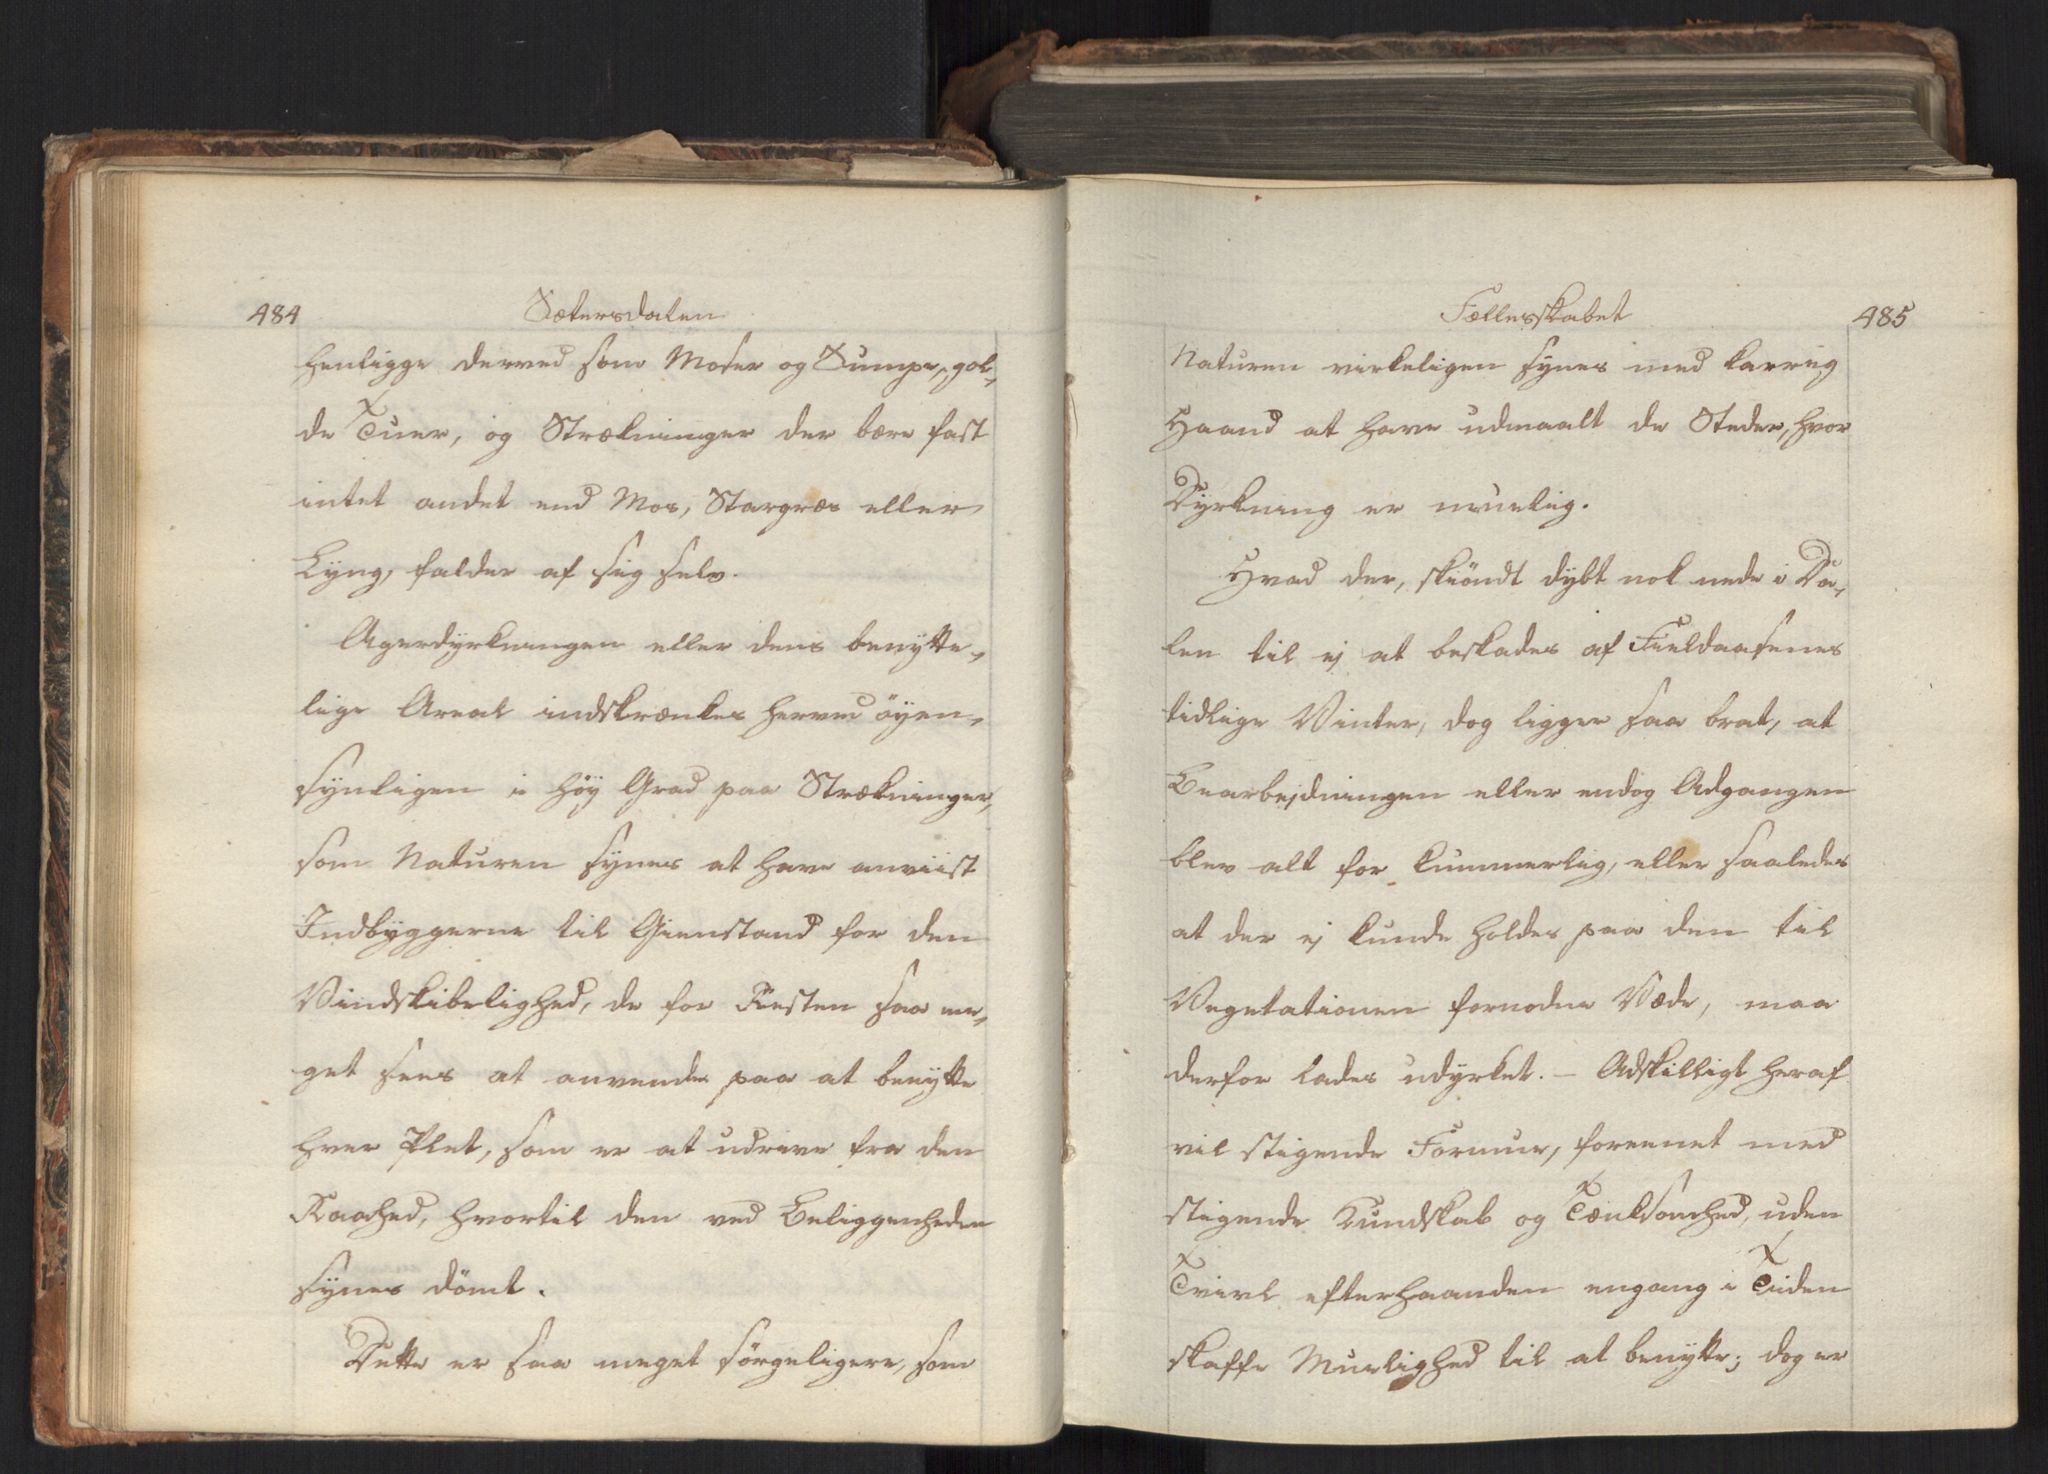 484
Sætersdalen
henligge derved som Moser og Sumpe, gol-
de Tuer, og Strækninger der bære fast
intet andet end Mos, Stargræs eller
Lyng, falder af sig selv.
Agerdyrkningen eller dens benytte-
lige Areal indskrænkes herved öyen-
synligen i höy Grad paa Strækninger,
som Naturen synes at have anviist
Indbyggerne til Gienstand for den
Vindskibelighed, de for Resten saa me-
get sees at anvende paa at benytte
hver Plet, som er at udrive fra den
Raahed, hvortil den ved Beliggenheden
synes dömt.
Dette er saa meget sörgeligere, som
Fællesskabet
485
Naturen virkeligen synes med karrig
Haand at have udmaalt de Steder, hvor
Dyrkning er muelig.
Hvad der, skiöndt dybt nok nede i Da-
len til ej at beskades af Fieldaasenes
tidlige Vinter, dog ligger saa brat, at
Bearbejdningen eller endog Adgangen
blev alt for kummerlig, eller saaledes
at der ej kunde holdes paa den til
Vegetationen fornodne Væde, maa
derfor lades udyrket. – Adskilligt heraf
vil stigende Formue, foreenet med
stigende Kundskab og Tænksomhed, uden
Tvivl efterhaanden engang i Tiden
skaffe Muelighed til at benytte; dog er